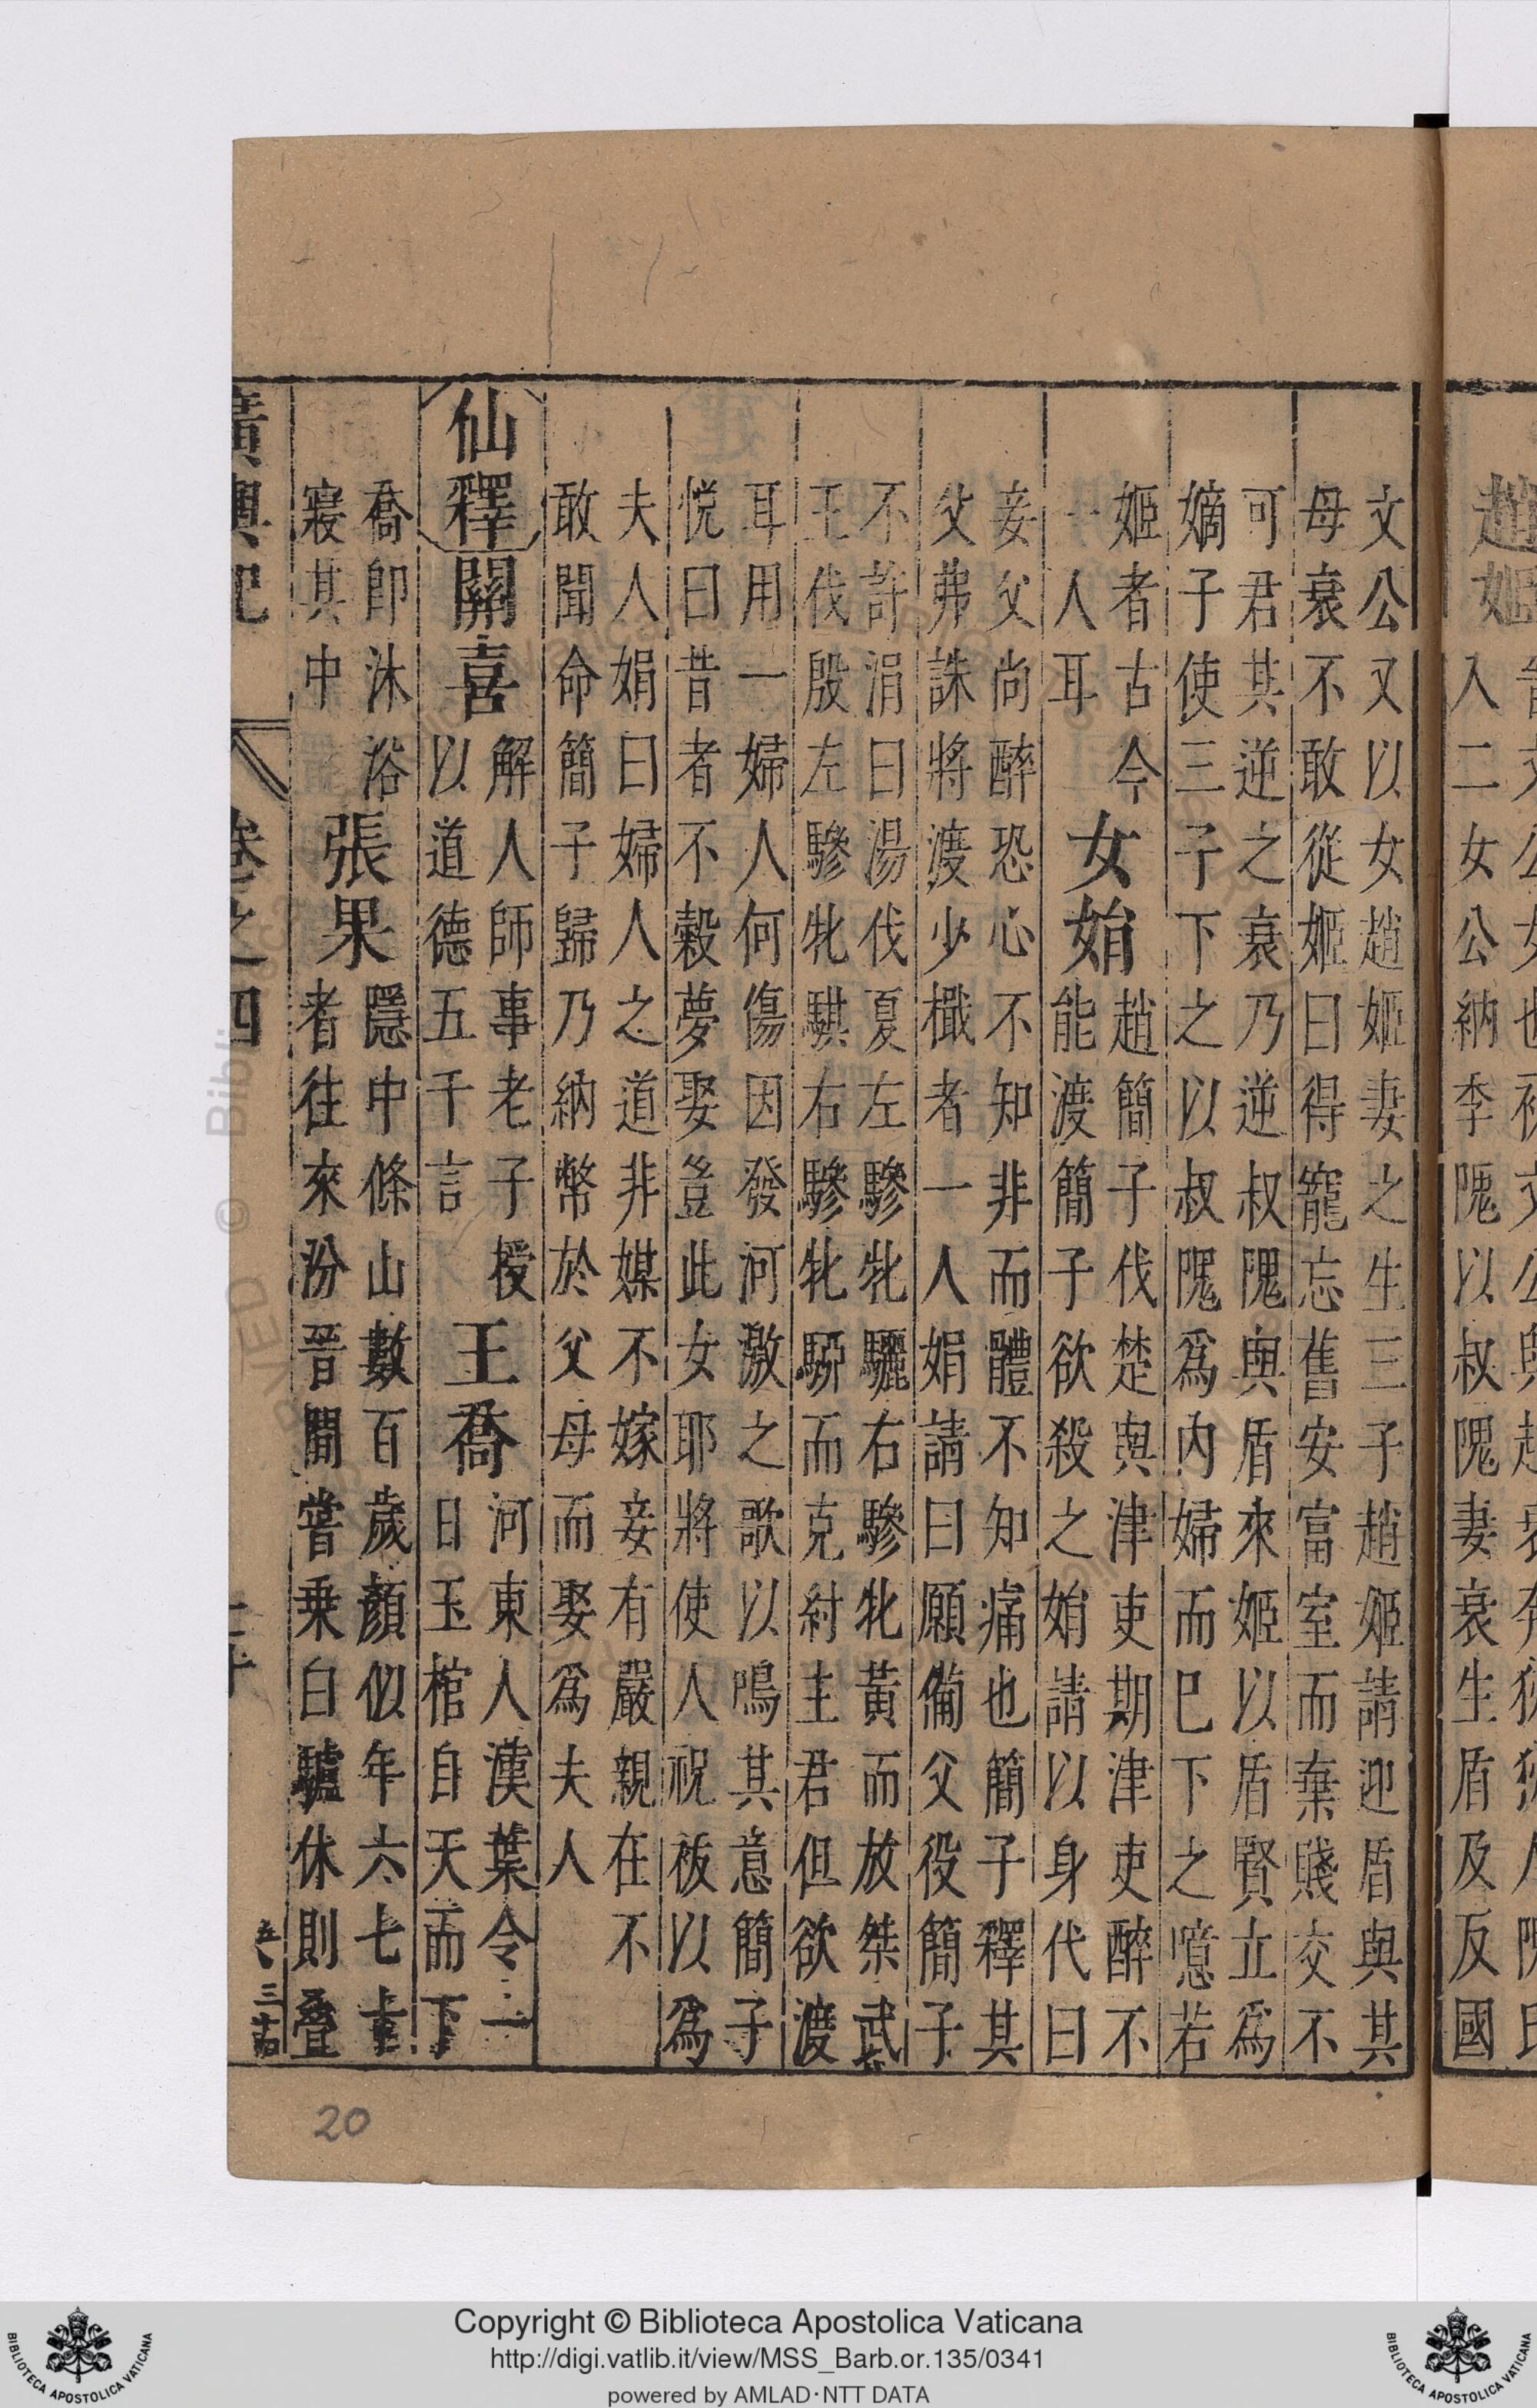 趙姬
人二女公納季隗以叔隗妻衰生盾及反國
文公又以女趙姬妻之生三子趙姬請迎盾與其
母衰不敢從姬曰得寵忘舊安富室而棄賤交不
可君其逆之衰乃逆叔隗與盾來姬以盾賢立爲
嫡子使三子下之以叔隗爲內婦而已下之噫若
姬者古今
一人耳
女娟
趙簡子伐楚與津吏期津吏醉不
能渡簡子欲殺之娟請以身代曰
妾父尚醉恐心不知非而體不知痛也簡子釋其
父弗誅將渡少檝者一人娟請曰願備父役簡子
不許涓曰湯伐夏左驂牝驪右驂牝黃而放桀武
王伐殷左驂牝騏右驂牝騢而克紂主君但欲渡
耳用一婦人何傷因發河激之歌以鳴其意簡子
悅曰昔者不穀夢娶豈此女耶將使人祝祓以爲
夫人娟曰婦人之道非媒不嫁妾有嚴親在不
敢聞命簡子歸乃納幣於父母而娶爲夫人
仙釋
關喜
解人師事老子授
以道德五千言
王喬
河東人漢葉令一
日玉棺自天而下
喬即沐浴
寢其中
張果
隱中條山數百歲顏似年六七十
者往來汾晉間嘗乗白驢休則疊
廣輿記
卷之四
20
Copyright © Biblioteca Apostolica Vaticana
http://digi.vatlib.it/view/MSS_Barb.or.135/0341
powered by AMLAD·NTT DATA
BIBLIOTECA APOSTOLICA VATICANA
BIBLIOTECA APOSTOLICA VATICANA